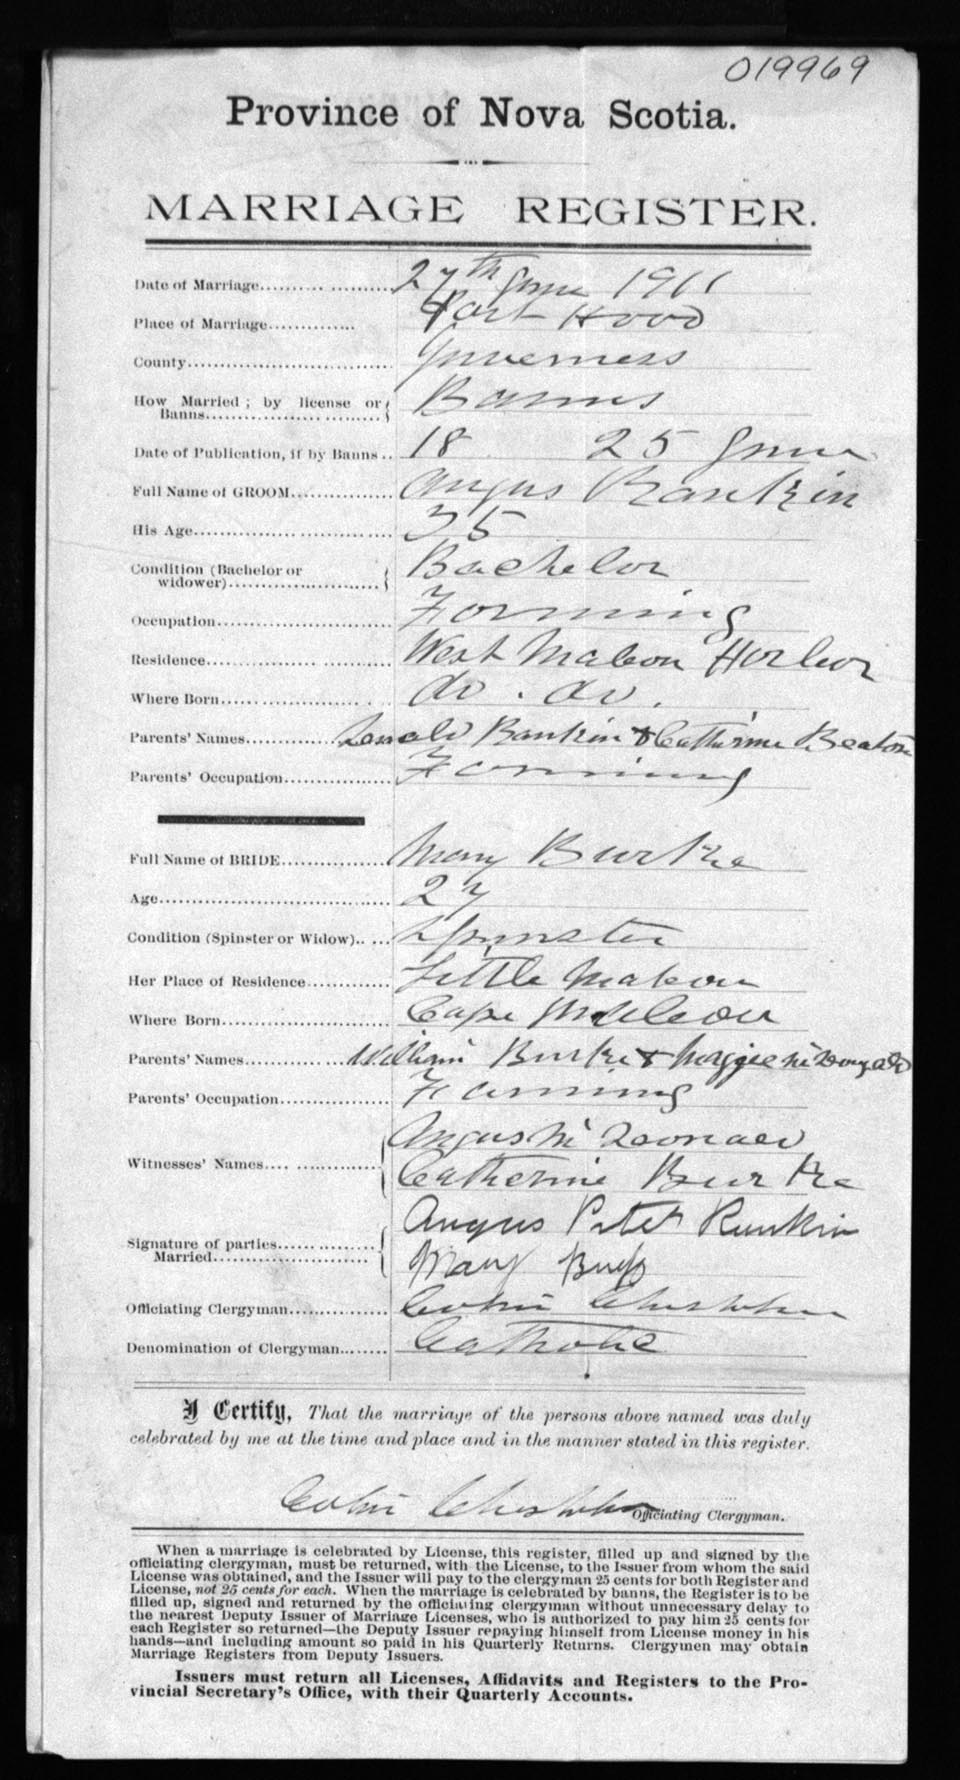 019969
Province of Nova Scotia.
MARRIAGE REGISTER.
Date of Marriage 27th June 1911
Place of Marriage Port Hood
County Inverness
How Married ; by license or Banns Banns
Date of Publication, if by Banns 18 25 June
Full Name of GROOM Angus Rankin
His Age 35
Condition (Bachelor or widower) Bachelor
Occupation Farming
Residence West Mabou Harbor
Where Born do. do.
Parents' Names Donald Rankin & Catherine Beaton
Parents' Occupation Farming
Full Name of BRIDE Mary Burke
Age 27
Condition (Spinster or Widow) Spinster
Her Place of Residence Little Mabou
Where Born Cape Mabou
Parents' Names William Burke & Maggie McDougald
Parents' Occupation Farming
Witnesses' Names Angus McDonald
Catherine Burke
Signature of parties Married Angus Peter Rankin
Mary
Officiating Clergyman Colin Chisholm
Denomination of Clergyman Catholic
I Certify, That the marriage of the persons above named was duly
celebrated by me at the time and place and in the manner stated in this register.
Colin Chisholm
Officiating Clergyman.
When a marriage is celebrated by License, this register, filled up and signed by the
officiating clergyman, must be returned, with the License, to the Issuer from whom the said
License was obtained, and the Issuer will pay to the clergyman 25 cents for both Register and
License, not 25 cents for each. When the marriage is celebrated by banns, the Register is to be
filled up, signed and returned by the officiating clergyman without unnecessary delay to
the nearest Deputy Issuer of Marriage Licenses, who is authorized to pay him 25 cents for
each Register so returned—the Deputy Issuer repaying himself from License money in his
hands—and including amount so paid in his Quarterly Returns. Clergymen may obtain
Marriage Registers from Deputy Issuers.
Issuers must return all Licenses, Affidavits and Registers to the Pro-
vincial Secretary's Office, with their Quarterly Accounts.